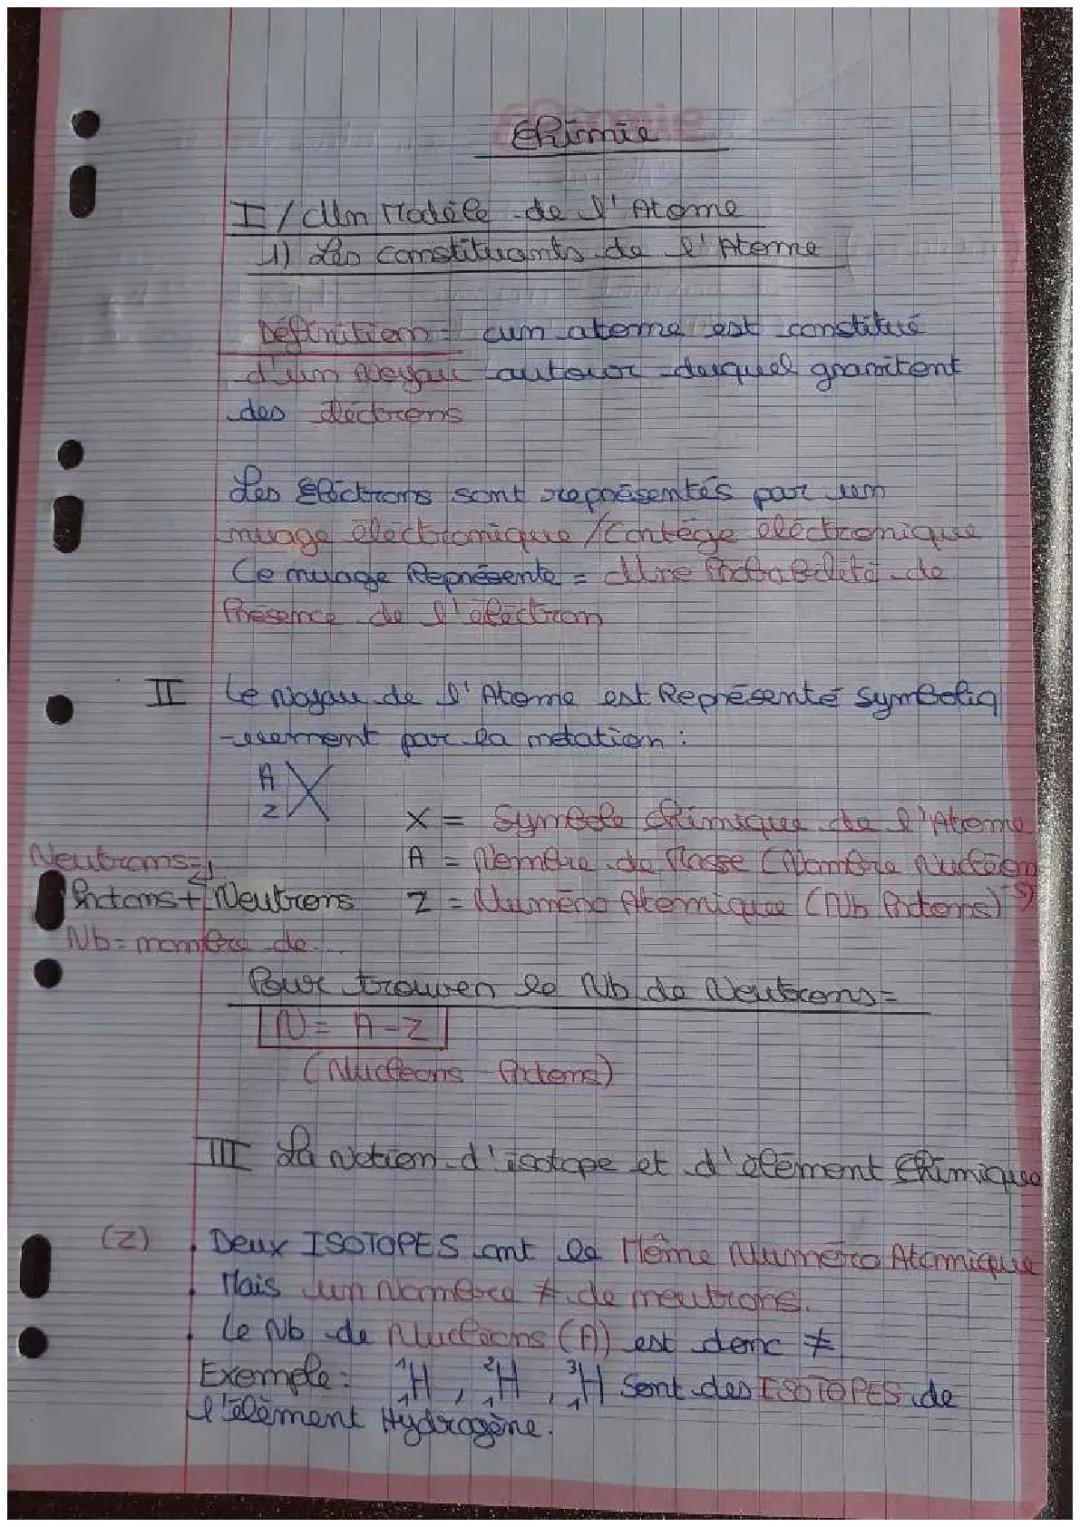 Chimie
I/ Un Modèle de l'Atome
1) Les constituants de l'Atome
Définition = un atome est constitué
d'un Noyau autour duquel gravitent
des électrons
Les Electrons sont représentés par un
nuage électronique / Cortège électronique
Ce nuage Représente = Une Probabilité de
Présence de l'électron
II Le Noyau de l'Atome est Représenté symboliq
-uement par la notation :
A
Z X
X = Symbole Chimique de l'Atome
Neutrons=
A = Nombre de Masse (Nombre Nucléons)
Protons + Neutrons
Z = Numéro Atomique (Nb Protons)
Nb = nombre de ...
Pour trouver le Nb de Neutrons =
N = A - Z
(Nucléons Protons)
III La Notion d'isotope et d'élément Chimique
(Z) Deux ISOTOPES ont le Même Numéro Atomique
Mais un Nombre ≠ de neutrons.
Le Nb de Nucléons (A) est donc ≠
Exemple : ¹₁H , ²₁H , ³₁H Sont des ISOTOPES de
l'élément Hydrogène.